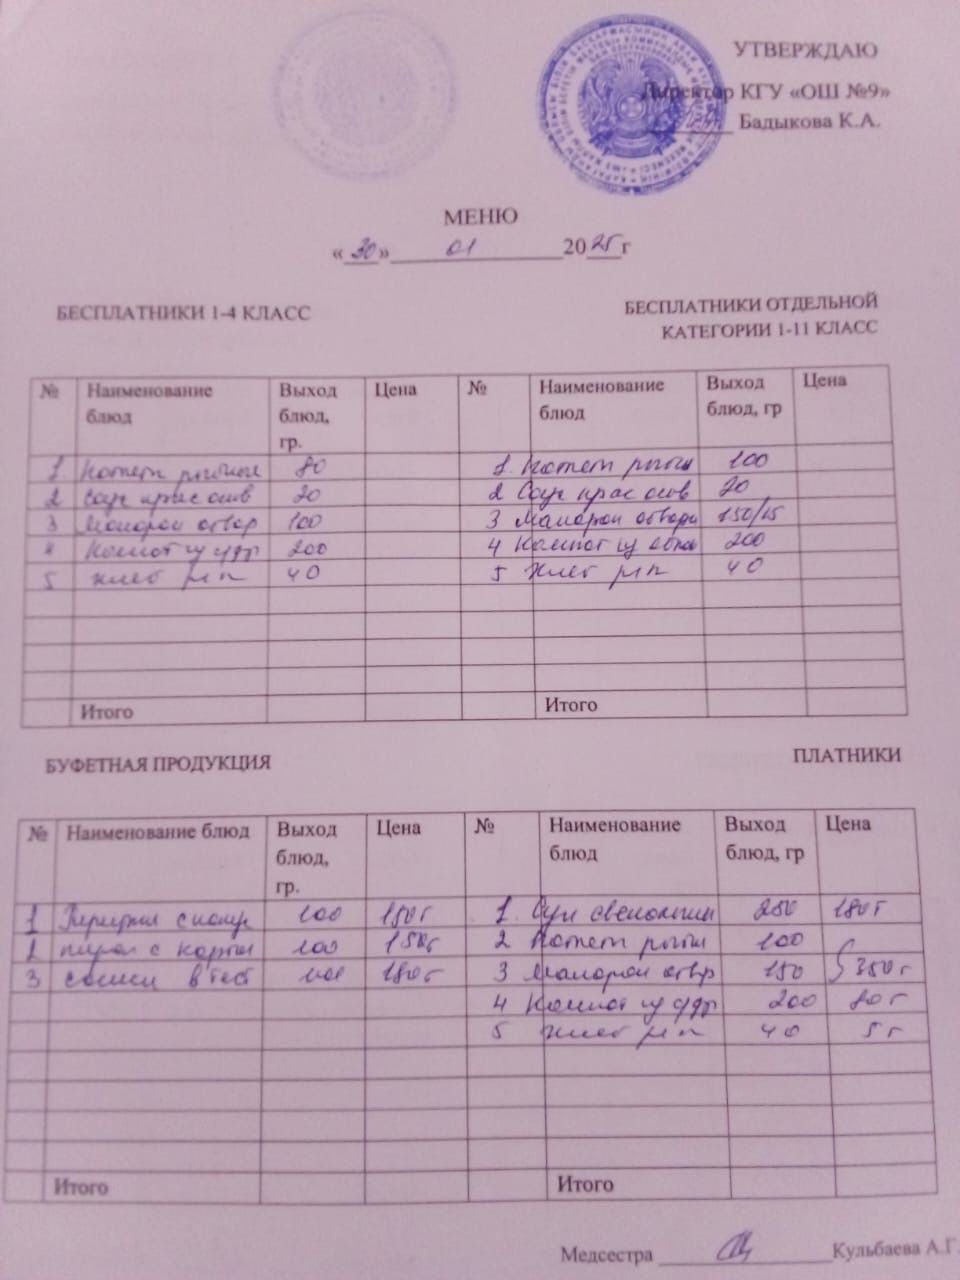 УТВЕРЖДАЮ
Директор КГУ «ОШ №9»
Бадыкова К.А.
МЕНЮ
«30» 01 2025г
БЕСПЛАТНИКИ 1-4 КЛАСС
БЕСПЛАТНИКИ ОТДЕЛЬНОЙ
КАТЕГОРИИ 1-11 КЛАСС
№ Наименование блюд Выход блюд, гр. Цена № Наименование блюд Выход блюд, гр Цена
1. Котлет 80 1. Котлет 100
2 Соус крас осн 20 2 Соус крас осн 20
3 Макарон отвар 100 3 Макарон отвар 150/15
4 Компот 200 4 Компот 200
5 хлеб рж п 40 5 хлеб рж п 40
Итого Итого
БУФЕТНАЯ ПРОДУКЦИЯ
ПЛАТНИКИ
№ Наименование блюд Выход блюд, гр. Цена № Наименование блюд Выход блюд, гр Цена
1 100 150т 1. Суп 250 180т
2 пирож с картош 100 150т 2 Котлет 100
3 сосиск в тест 100 180т 3 Макарон отвр 150 350т
4 Компот 200 80т
5 хлеб рж п 40 5т
Итого Итого
Медсестра Кульбаева А.Г.